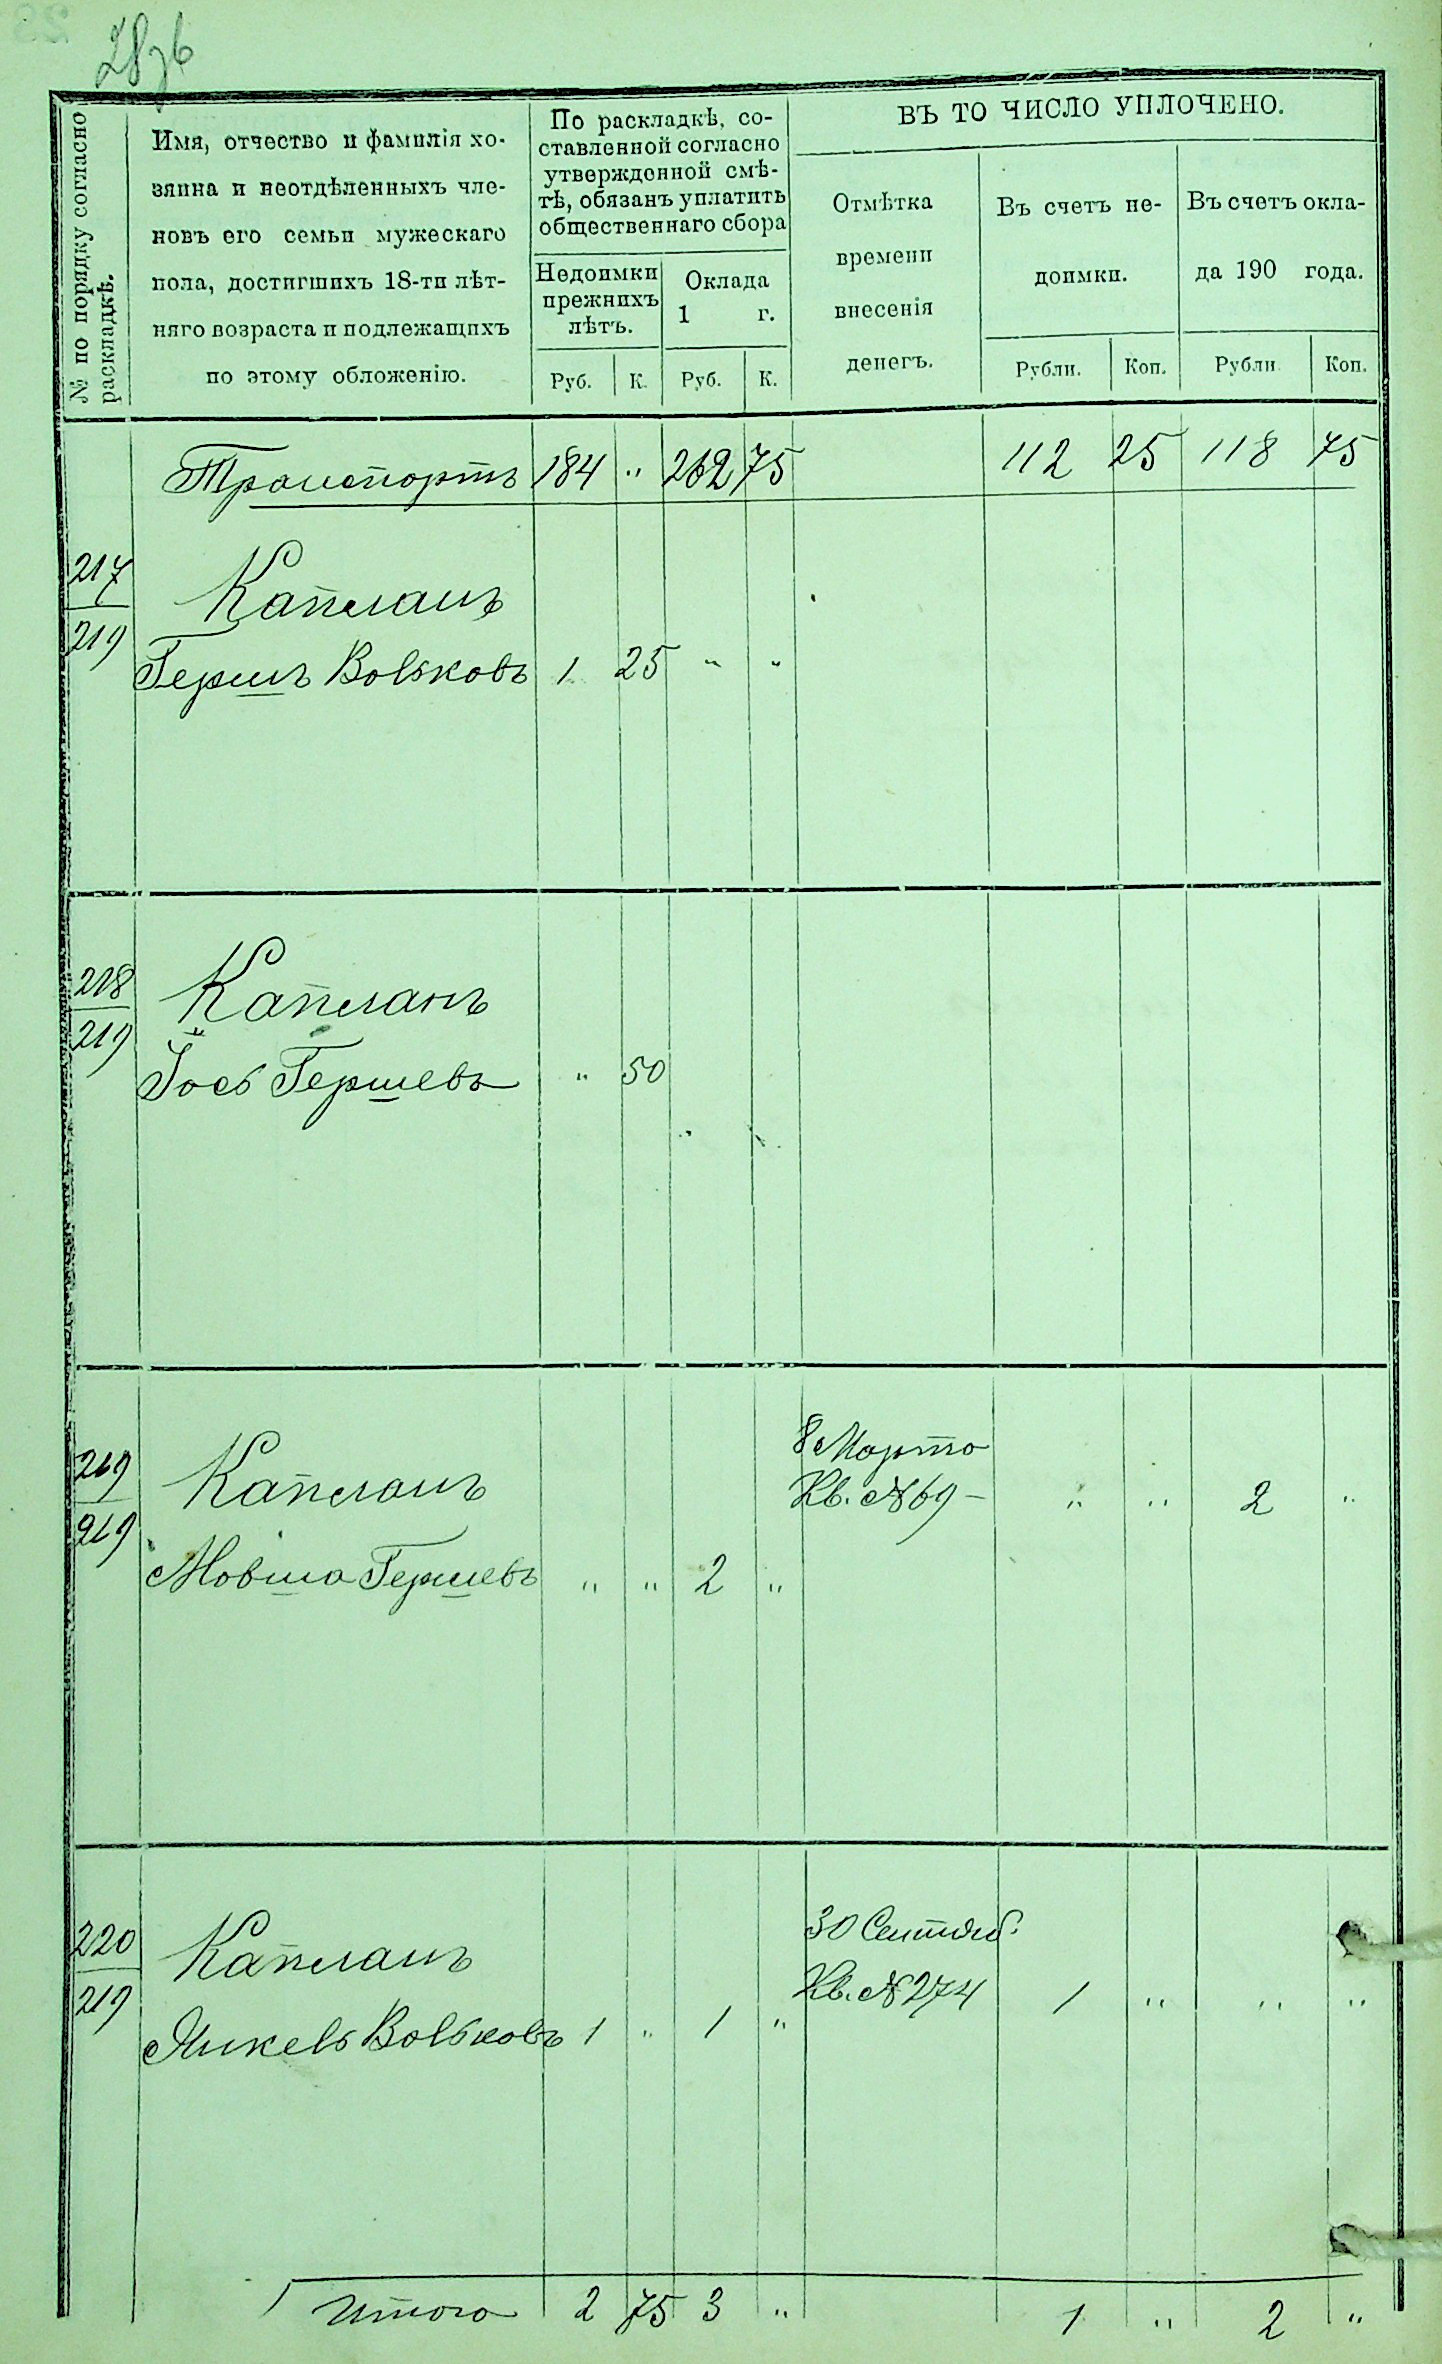 28об
№ по порядку согласно
раскладкѣ.
Имя, отчество и фамилія хо-
зяина и неотдѣленныхъ чле-
новъ его семьи мужескаго
пола, достигшихъ 18-ти лѣт-
няго возраста и подлежащихъ
по этому обложенію.
По раскладкѣ, со-
ставленной согласно
утвержденной смѣ-
тѣ, обязанъ уплатить
общественнаго сбора
Недоимки
прежнихъ
лѣтъ.
Оклада
1 г.
Руб. К. Руб. К.
ВЪ ТО ЧИСЛО УПЛОЧЕНО.
Отмѣтка
времени
внесенія
денегъ.
Въ счетъ не-
доимки.
Въ счетъ окла-
да 190 года.
Рубли. Коп. Рубли. Коп.
Транспортъ 184 " 262 75 112 25 118 75
217
219
Капланъ
Гершъ Вольковъ 1 25 " "
218
219
Капланъ
Іось Гершевъ " 50
219
219
Капланъ
8 Марта
Кв. № 69 - " " 2 "
Мовша Гершевъ " " 2 "
220
219
Капланъ
30 Сентяб.
Кв. № 274 1 " " "
Янкель Вольковъ 1 " 1 "
Итого 2 75 3 " 1 " 2 "